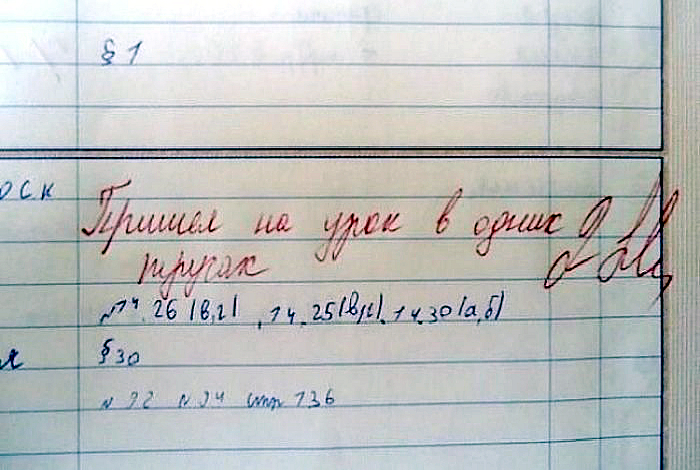 § 1
оск
Пришел на урок в одних
трусах
№14.26(в,г), 14.25(в,г), 14.30(а,б)
я § 30
№ 92 № 94 стр 136